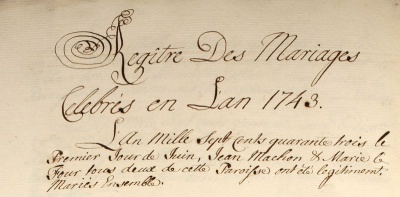 Regitre Des Mariages
Celebrés en Lan 1743.
LAn Mille Sept Cents quarante trois le
Premier Jour de Juin, Jean Machon & Marie le
Four tous deux de cette Paroisse ont été legitimemt
Mariés Ensemble.